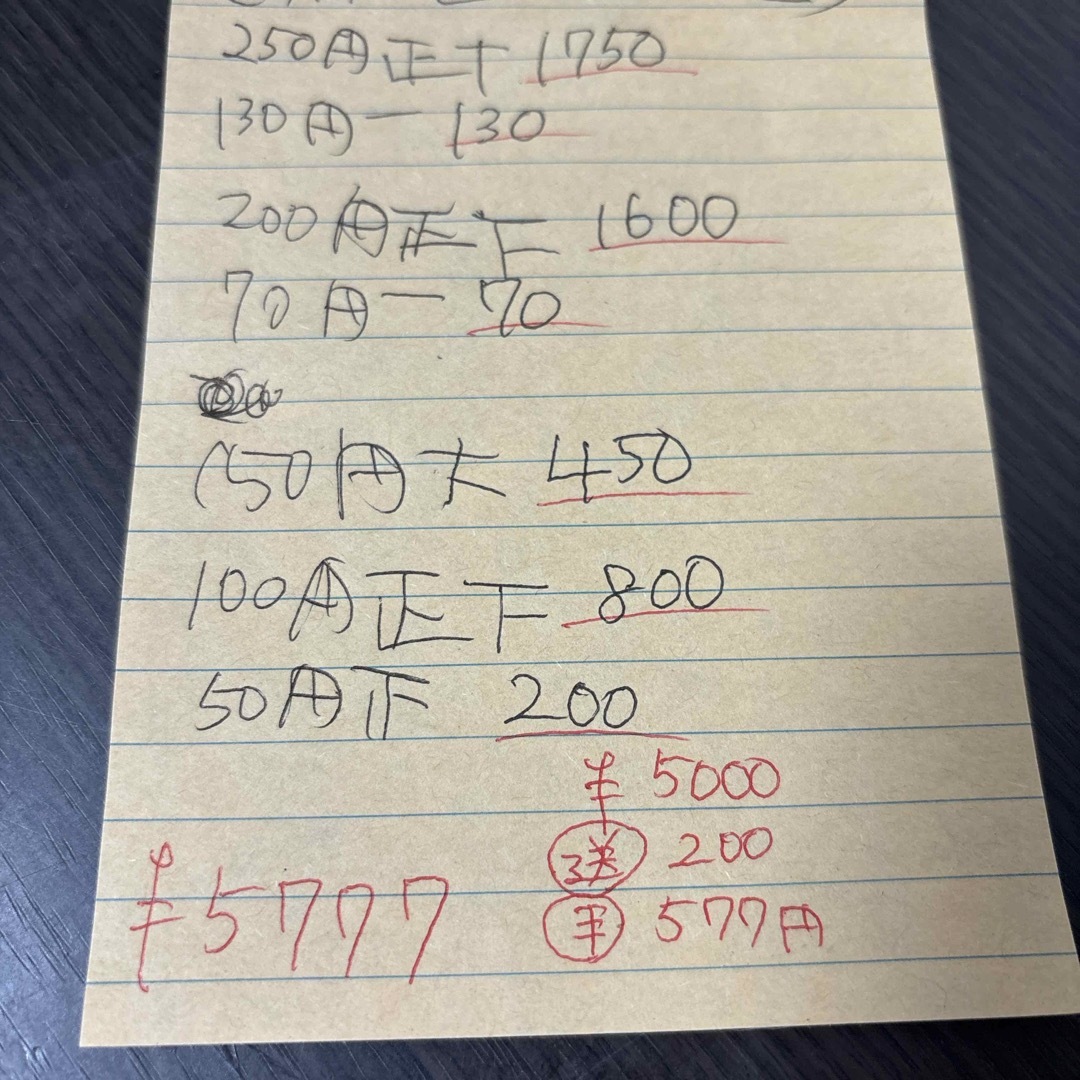 250円正丅 1750
130円一 130
200円正下 1600
70円一 70
150円下 450
100円正下 800
50円正 200
¥5000
送 200
手 577円
¥5777